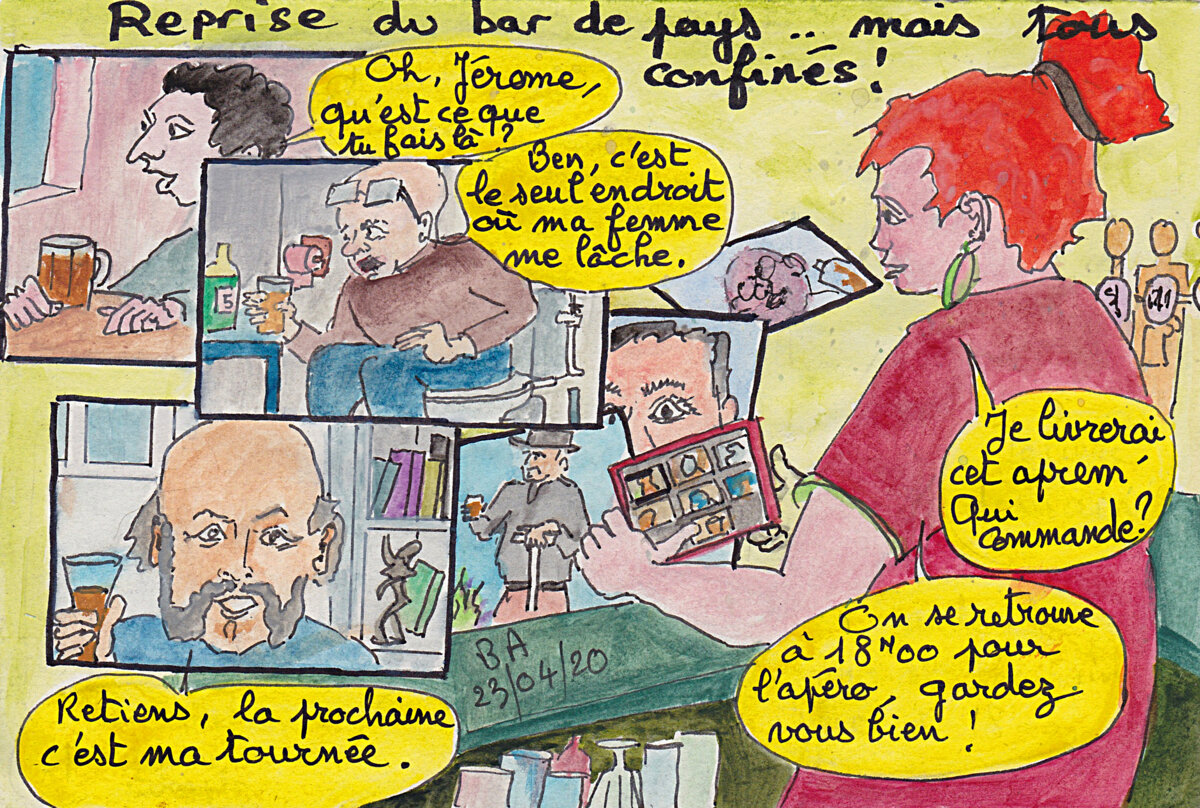 Reprise du bar de pays .. mais tous
confinés !
Oh, Jérome,
qu'est ce que
tu fais là ?
Ben, c'est
le seul endroit
où ma femme
me lâche.
5
Je livrerai
cet aprem
Qui
commande ?
On se retrouve
à 18H00 pour
l'apéro, gardez
vous bien !
BA
23/04/20
Retiens, la prochaine
c'est ma tournée.